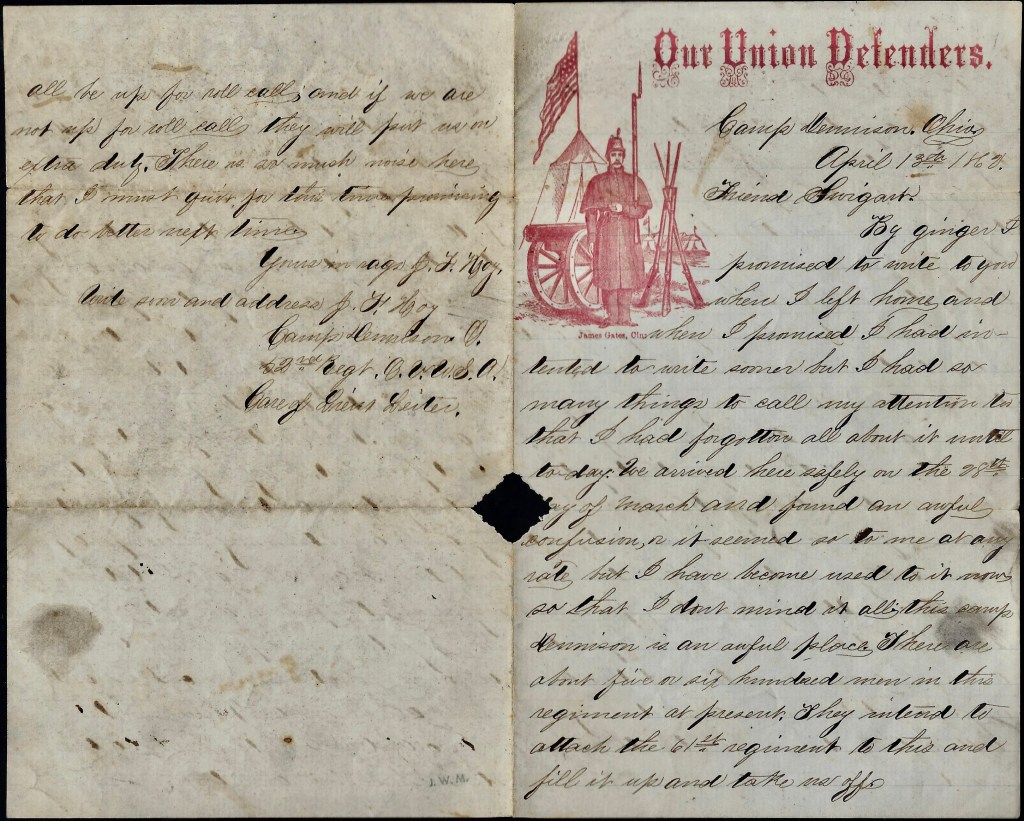 Our Union Defenders.
Camp Dennison. Ohio
April 13th 1862.
Friend Swigart.
By ginger I
promised to write to you
when I left home, and
James Gates, Cin.
when I promised I had in-
tented to write sooner but I had so
many things to call my attention to
that I had forgotton all about it until
to day. We arrived here safely on the 28th
day of March and found an awful
confusion, or it seemed so to me at any
rate, but I have become used to it now
so that I dont mind it all, this camp
Dennison is an awful place, There are
about five or six hundred men in this
regiment at present. They intend to
attach the 61st regiment to this and
fill it up and take us off.
all be up for roll call, and if we are
not up for roll call they will put us on
extra duty. There is so much noise here
that I must quit for this time promising
to do better next time
Yours in rags J. F. Hoy.
Write soon and address J. F. Hoy
Camp Dennison O.
52nd Regt. O. V. U. S. A.
Care of Lieut Deiter.
J. W. M.